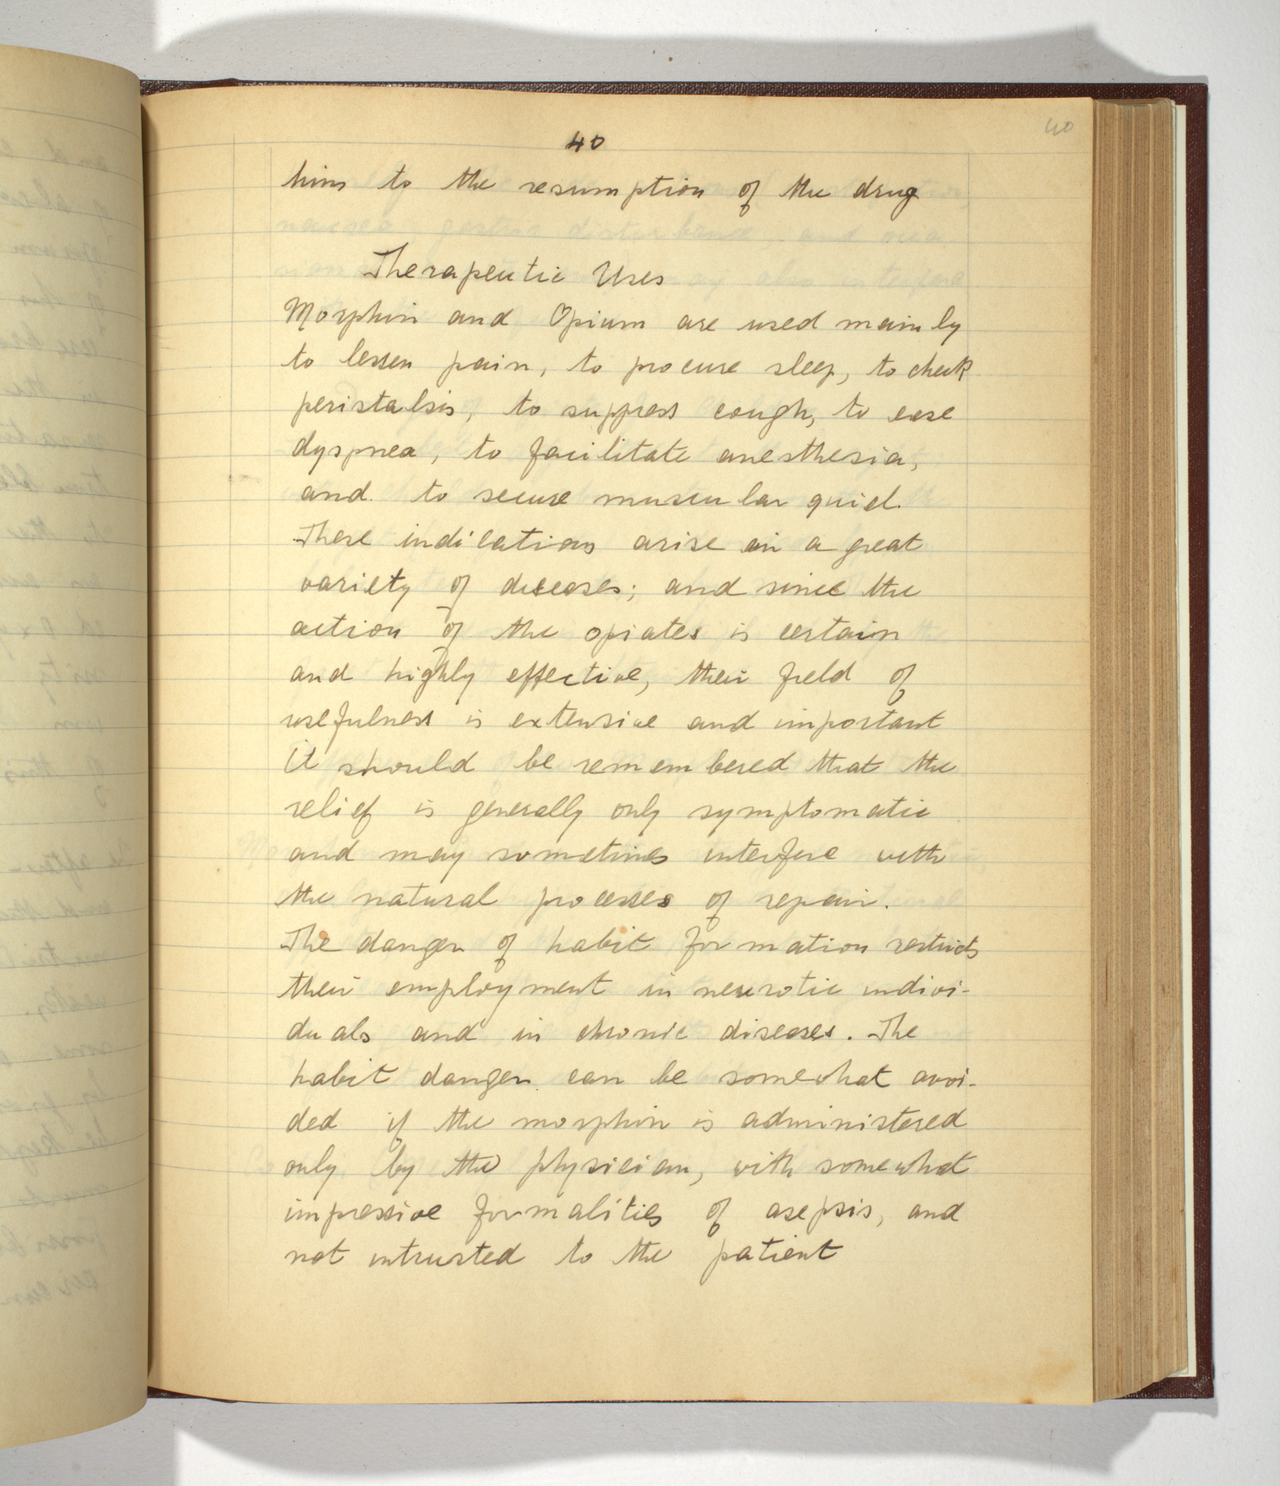 40
40
him to the resumption of the drug
Therapeutic Uses
Morphin and Opium are used mainly
to lessen pain, to procure sleep, to check
peristalsis, to suppress cough, to ease
dyspnea, to facilitate anesthesia,
and to secure muscular quiet.
These indications arise in a great
variety of diseases; and since the
action of the opiates is certain
and highly effective, their field of
usefulness is extensive and important
it should be remembered that the
relief is generally only symptomatic
and may sometimes interfere with
the natural processes of repair.
The danger of habit formation restricts
their employment in neurotic indivi-
duals and in chronic diseases. The
habit danger can be somewhat avoi-
ded if the morphin is administered
only by the physician, with somewhat
impressive formalities of asepsis, and
not intrusted to the patient